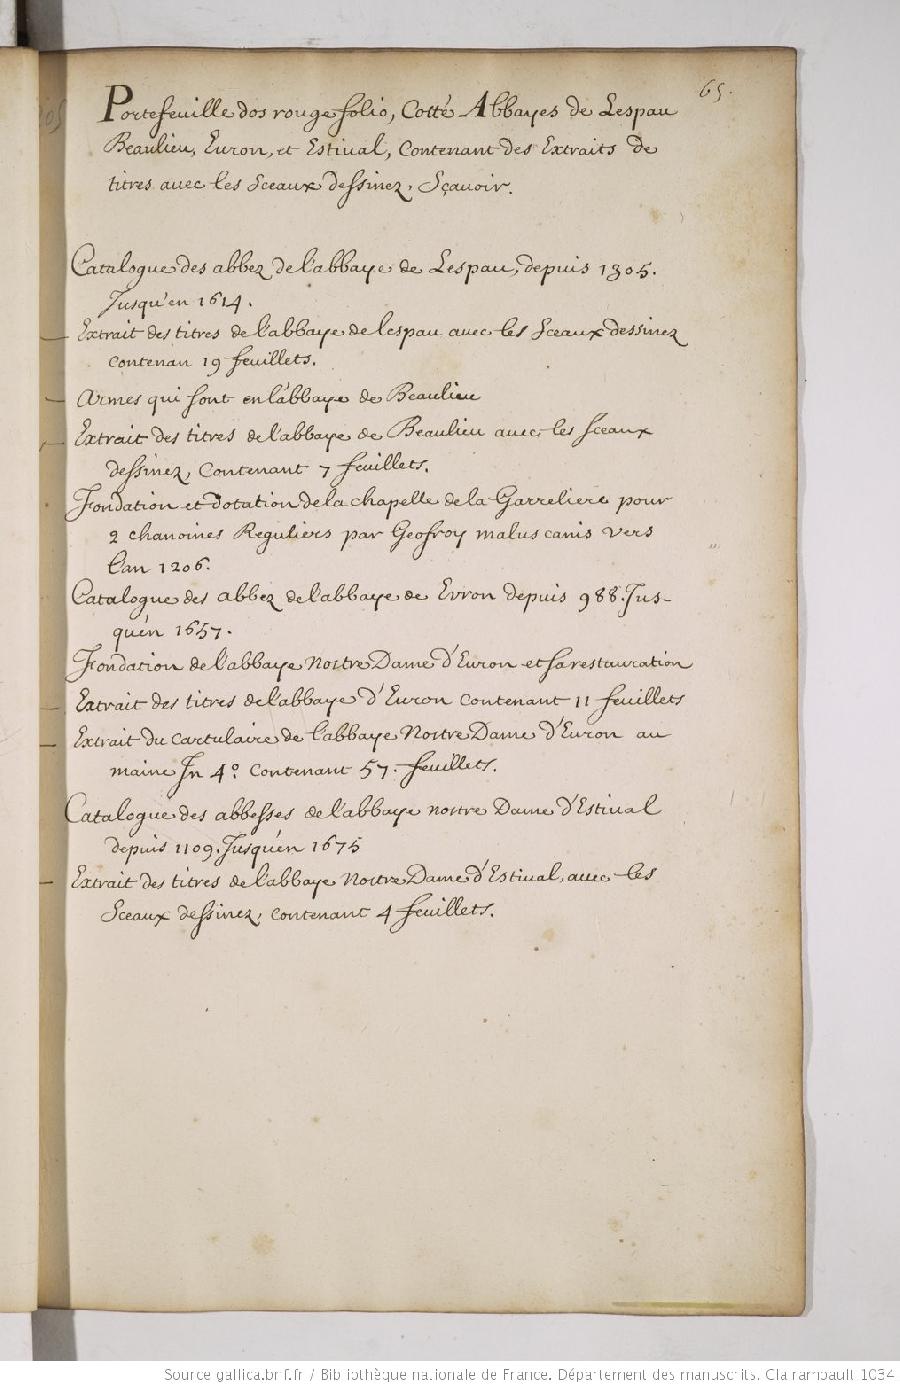 65.
Portefeuille dos rouge folio, Cotté Abbayes de Lespau
Beaulieu, Euron, et Estiual, Contenant des Extraits de
titres avec les Sceaux dessinez, Sçauoir.
Catalogue des abbez de l'abbaye de Lespau, depuis 1305.
Jusqu'en 1614.
Extrait des titres de l'abbaye de lespau avec les Sceaux dessinez
contenan 19 feuillets.
Armes qui sont en l'abbaye de Beaulieu
Extrait des titres de l'abbaye de Beaulieu avec les Sceaux
dessinez, Contenant 7 feuillets.
Fondation et dotation de la chapelle de la Garreliere pour
2 chanoines Reguliers par Geofroy malus canis vers
l'an 1206.
Catalogue des abbez de l'abbaye de Evron depuis 988. Jus-
qu'en 1657.
Fondation de l'abbaye Nostre Dame d'Euron et sa restauration
Extrait des titres de l'abbaye d'Euron contenant 11 feuillets
Extrait du cartulaire de l'abbaye Nostre Dame d'Euron au
maine In 4.° Contenant 57. feuillets.
Catalogue des abbesses de l'abbaye nostre Dame d'Estiual
depuis 1109. Jusqu'en 1675
Extrait des titres de l'abbaye Nostre Dame d'Estiual, avec les
Sceaux dessinez, contenant 4 feuillets.
Source gallica.bnf.fr / Bibliothèque nationale de France. Département des manuscrits. Clairambault 1034